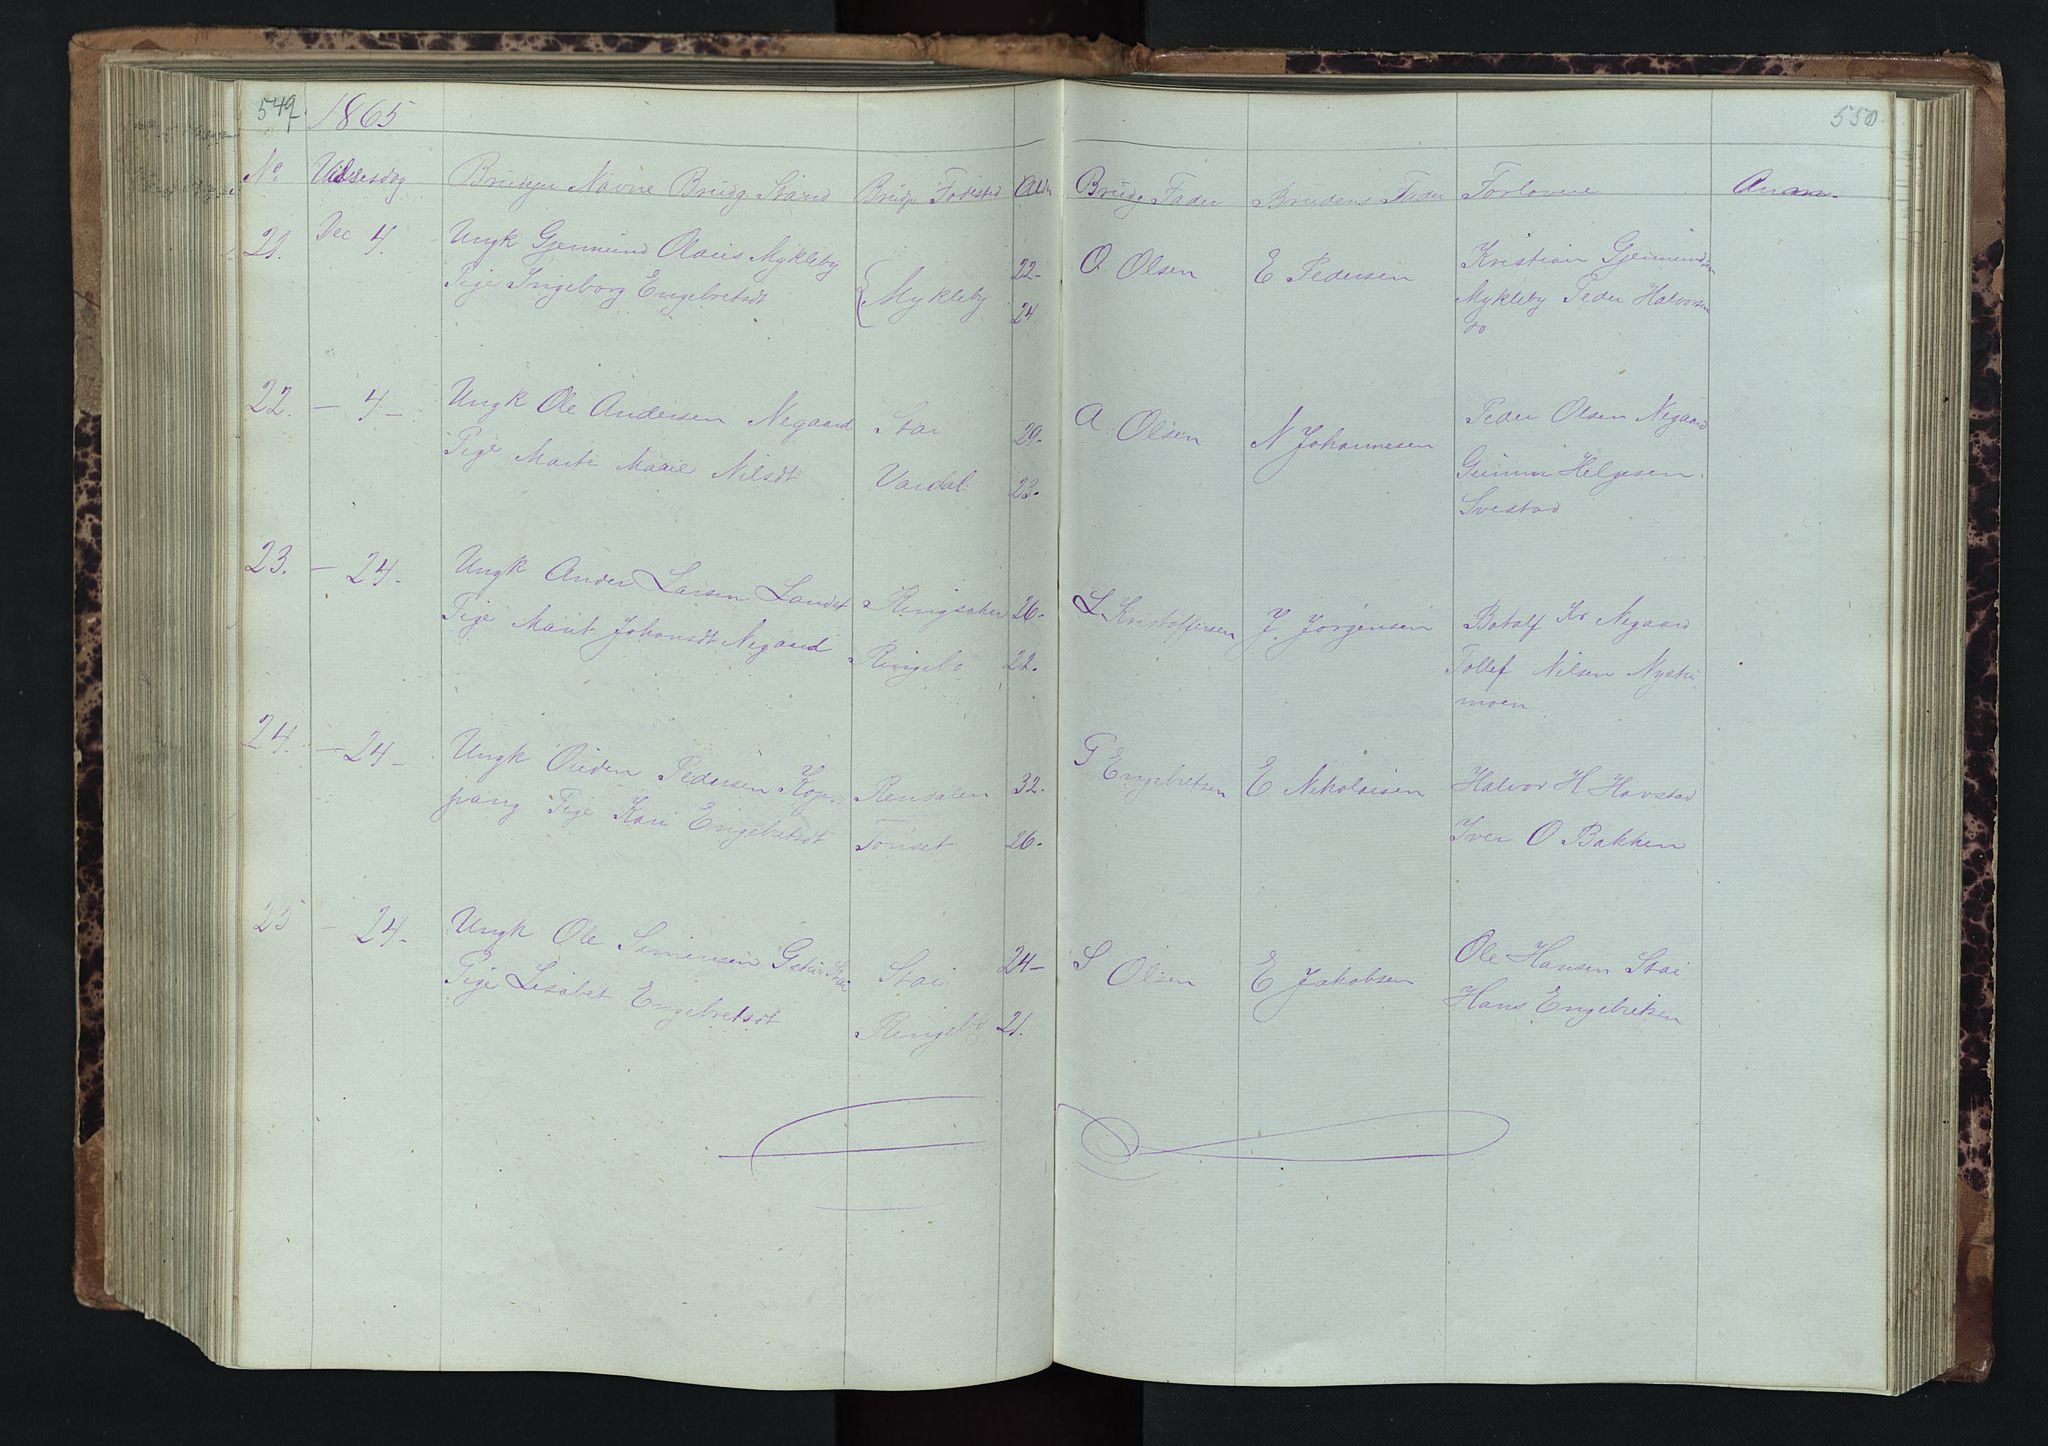 549. 1865
550
No. Vielsesdag Brudep Navne Brudg Stand Brudp Fødested Alder Brudg Fader Brudens Fader Forlovere Anm.
21. Dec 4. Ungk Gjermund Olsen Mykleby
Pige Ingeborg Engebretsdt
Mykleby
22-
24
O. Olsen E Pedersen
Kristian Gjermundsen
Mykleby Peder Halvorsen
do
22. – 4 – Ungk Ole Andersen Negaard Stai 29-
Pige Marte Marie Nilsdt Vardal 23-
A Olsen N Johannesen
Peder Olsen Negaard
Gunnar Helgesen
Svestad
23. – 24 – Ungk Anders Larsen Landet Ringsaker 26-
Pige Marit Johansdt Negaard Ringebo 22.
L Kristoffersen J. Jørgensen
Botolf Kr Negaard
Tollef Nilsen Nystu
moen
24. – 24 – Ungk Ouden Pedersen Kop-
pang Pige Kari Engebretsdt
Rendalen 32-
Tønset 26-
P Engebretsen E Nikolaisen
Halvor H Havstad
Iver O Bakken
25 – 24 – Ungk Ole Simensen Stai 24-
Pige Lisabet Engebretsdt Ringebo 21.
S Olsen E Jakobsen
Ole Hansen Stai
Hans Engebretsen